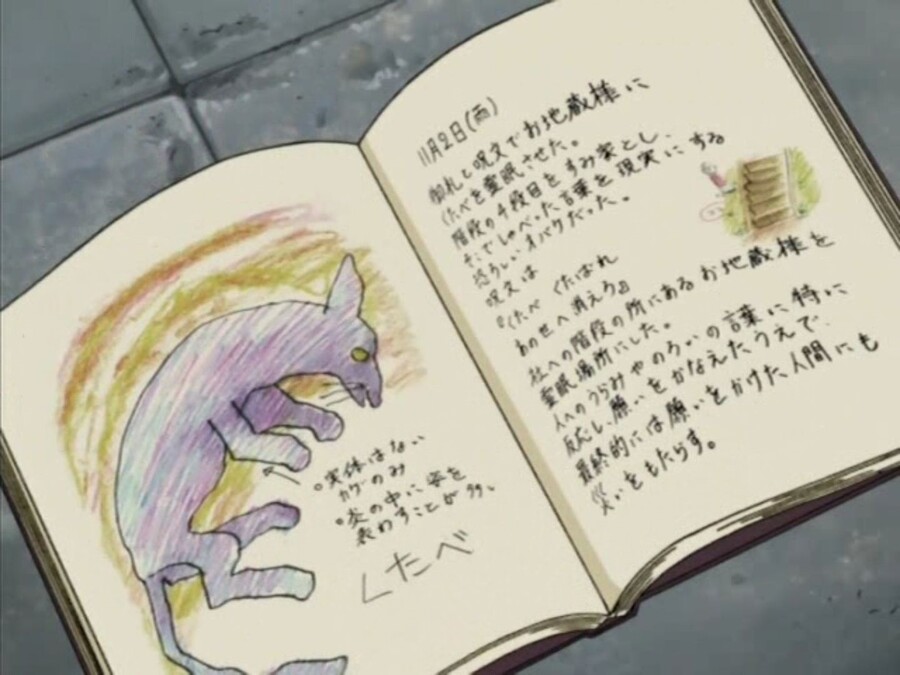 ○実体はない
カゲのみ
○炎の中に姿を
表わすことが多い
くたべ
11月2日(雨)
御札と呪文でお地蔵様に
くたべを霊眠させた。
階段の千段目をすみ家とし、
そこでしゃべった言葉を現実にする
恐ろしいオバケだった。
呪文は
『くたべ くたばれ
あの世へ消えろ』
社への階段の所にあるお地蔵様を
霊眠場所にした。
人へのうらみやのろいの言葉に特に
反応し、願いをかなえたうえで、
最終的には願いをかけた人間にも
災いをもたらす。